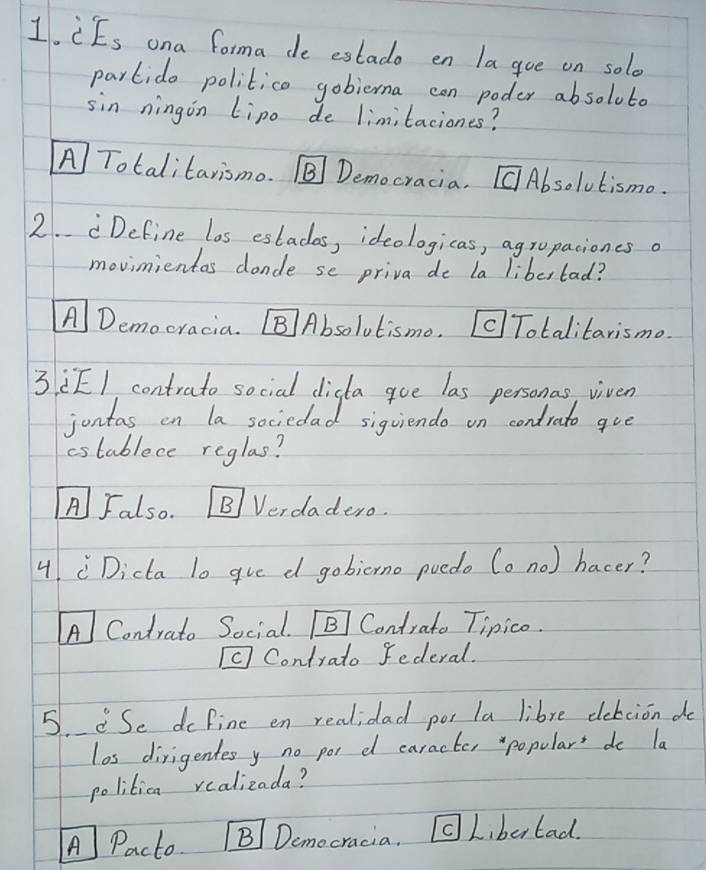 1. ¿Es una forma de estado en la que un solo
partido politico gobierna con poder absoluto
sin ningún tipo de limitaciones?
A Totalitarismo. B Democracia. C Absolutismo.
2.- ¿Define los estados, ideologicas, agrupaciones o
movimientos donde se priva de la libertad?
A Democracia. B Absolutismo. C Totalitarismo.
3. ¿El contrato social dicta que las personas viven
juntas en la sociedad siguiendo un contrato que
establece reglas?
A Falso. B Verdadero.
4. ¿Dicta lo que el gobierno puedo (o no) hacer?
A Contrato Social. B Contrato Tipico.
C Contrato Federal.
5.- ¿Se define en realidad por la libre elección de
los dirigentes y no por el caracter "popular" de la
politica realizada?
A Pacto. B Democracia. C Libertad.